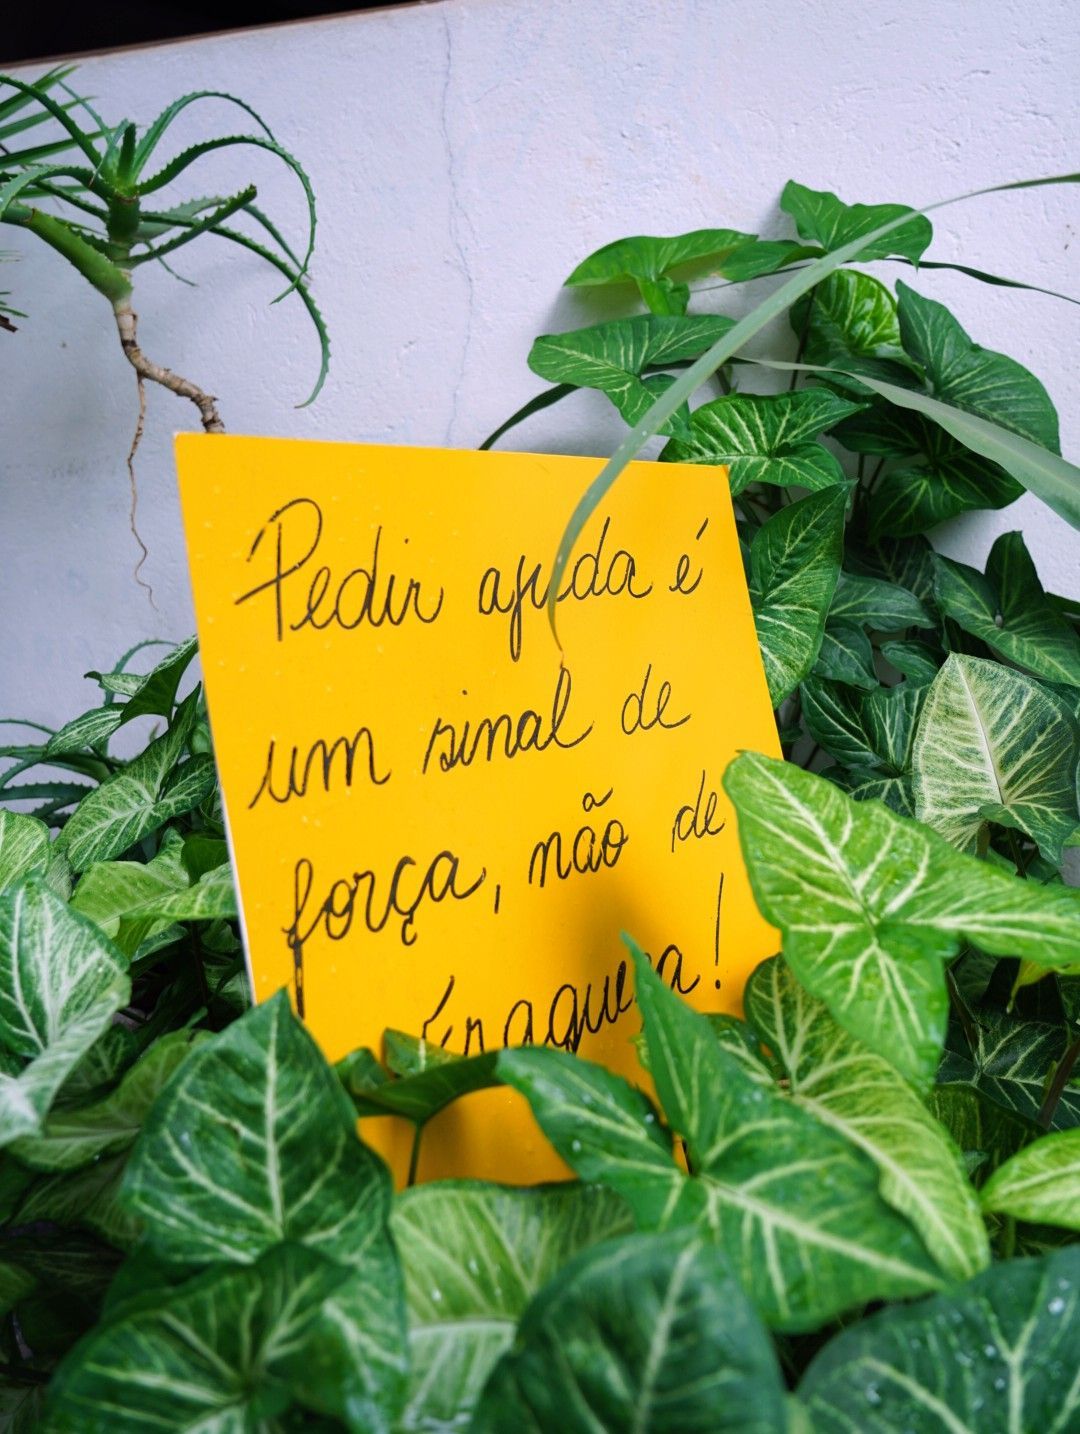 Pedir ajuda é
um sinal de
força, não de
fraqueza!